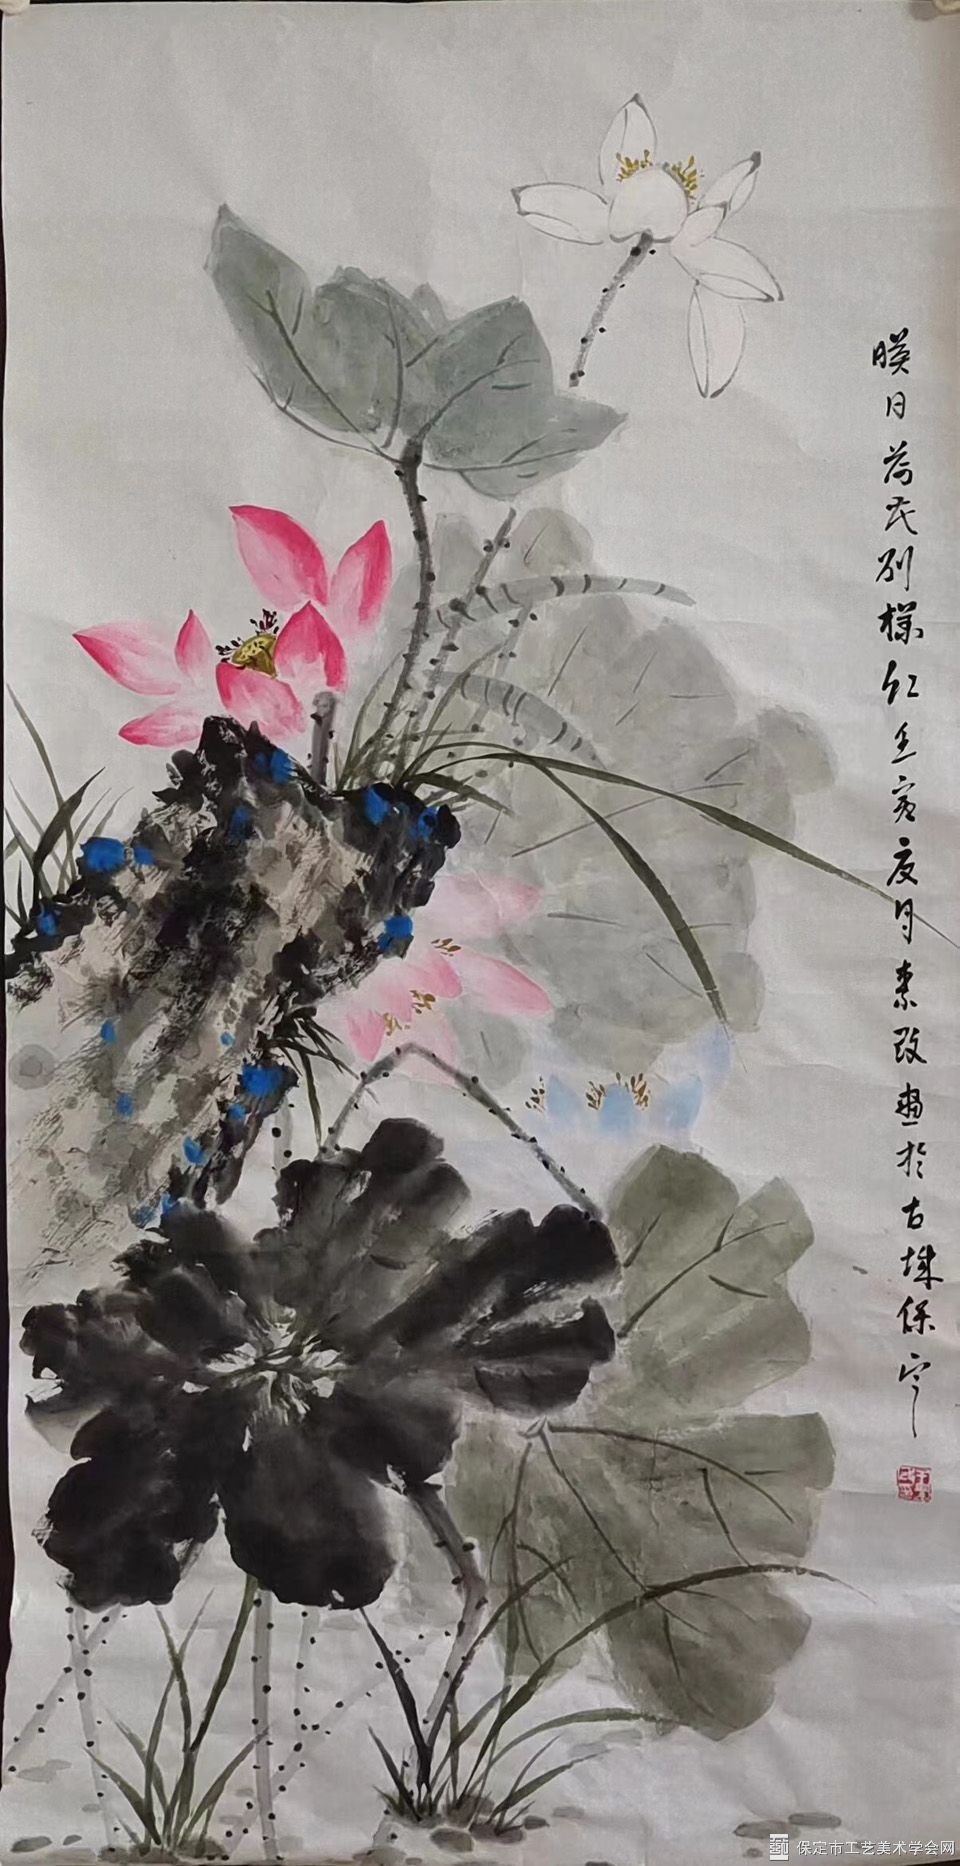 暎日荷花别样红壬寅夏月素改画於古城保定
保定市工艺美术学会网